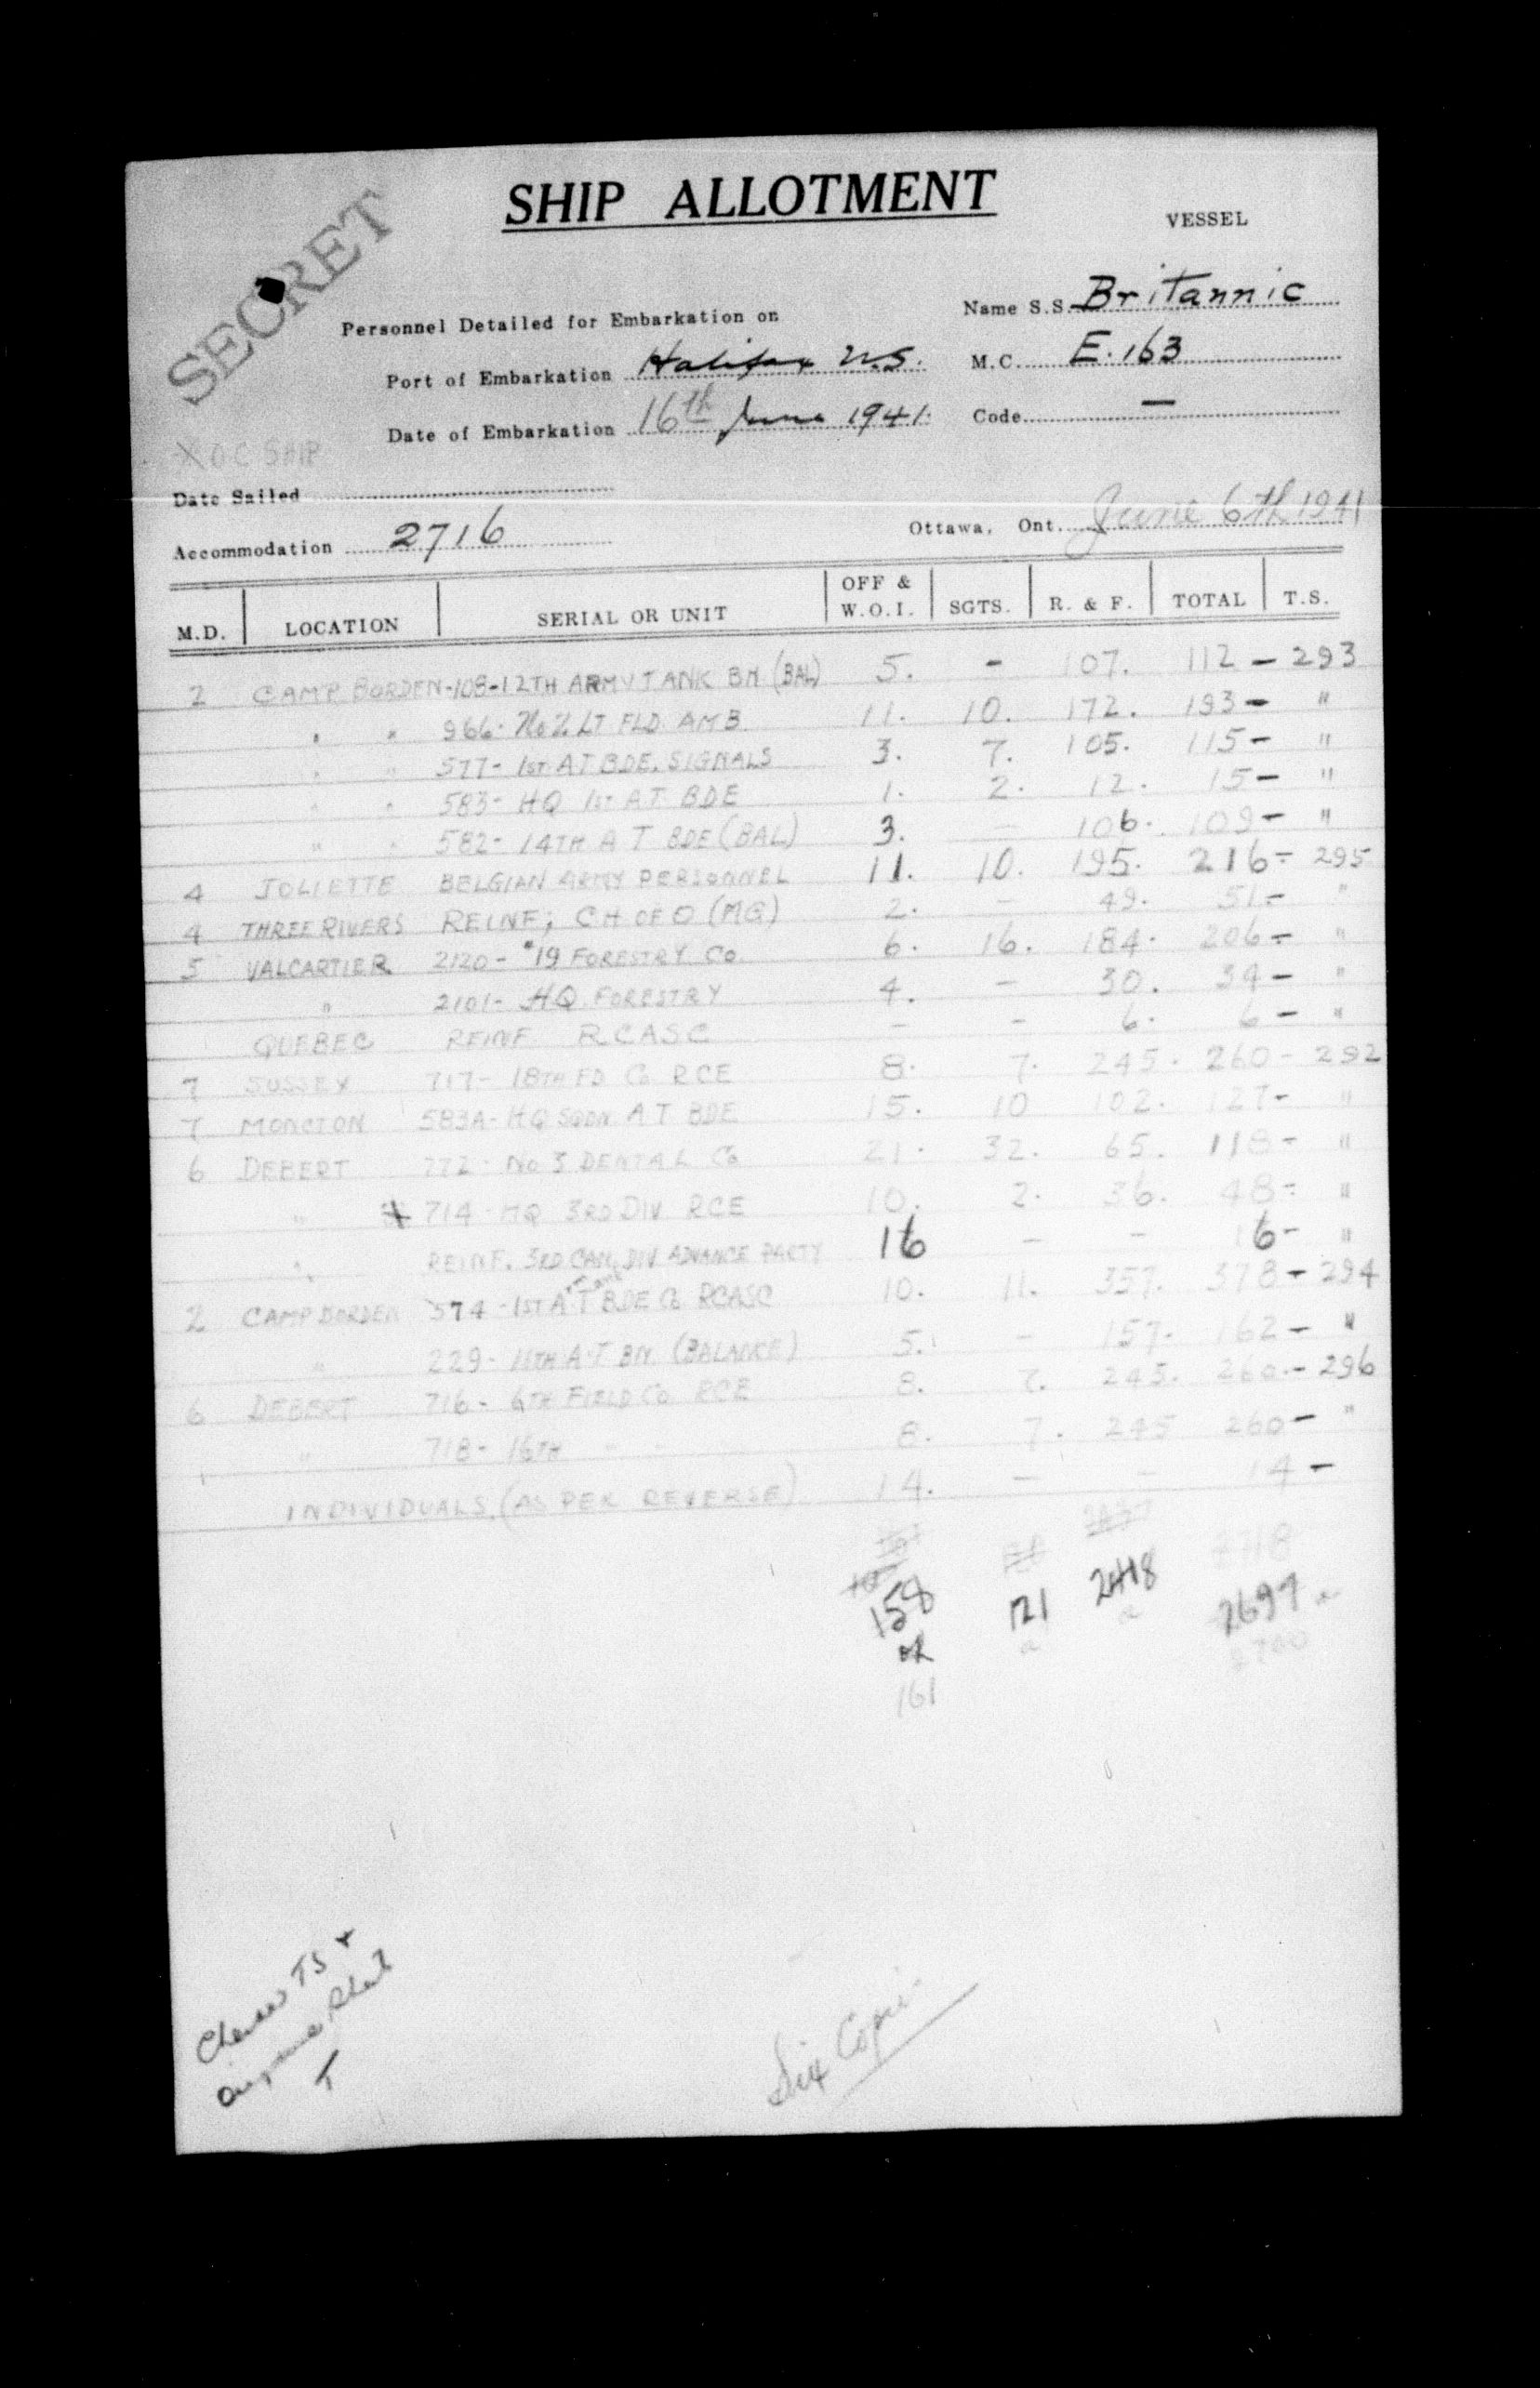 SHIP ALLOTMENT
VESSEL
SECRET
Personnel Detailed for Embarkation on
Name S.S. Britannic
Port of Embarkation Halifax N.S.
M.C. E.163
Date of Embarkation 16th June 1941.
Code —
X O.C SHIP
Date Sailed
Ottawa, Ont. June 6th 1941
Accommodation 2716
M.D. LOCATION SERIAL OR UNIT OFF & W.O.I. SGTS. R. & F. TOTAL T.S.
2 CAMP BORDEN-108-12TH ARMY TANK BN (BAL) 5. - 107. 112 - 293
" " 966- No 2 LT FLD AMB 11. 10. 172. 193 - "
" " 577- 1ST A T BDE. SIGNALS 3. 7. 105. 115 - "
" " 583- HQ 1ST A T BDE 1. 2. 12. 15 - "
" " 582- 14TH A T BDE (BAL) 3. - 106. 109 - "
4 JOLIETTE BELGIAN ARMY PERSONNEL 11. 10. 195. 216 - 295
4 THREE RIVERS REINF; CH OF O (MG) 2. - 49. 51 - "
5 VALCARTIER 2120 - #19 FORESTRY Co 6. 16. 184. 206 - "
" 2101- HQ FORESTRY 4. - 30. 34 - "
QUEBEC REINF RCASC - - 6. 6 - "
7 SUSSEX 717- 18TH FD Co RCE 8. 7. 245. 260 - 292
7 MONCTON 583A- HQ SQDN A T BDE 15. 10 102. 127 - "
6 DEBERT 772- No 3 DENTAL Co 21. 32. 65. 118 - "
" X 714- HQ 3RD DIV RCE 10. 2. 36. 48 - "
" REINF. 3RD CAN DIV ADVANCE PARTY 16 - - 16 - "
Tank
2 CAMP BORDEN 574 - 1ST A T BDE Co RCASC 10. 11. 357. 378 - 294
" 229- 11TH A T BN (BALANCE) 5. - 157. 162 - "
6 DEBERT 716- 6TH FIELD Co RCE 8. 7. 245. 260 - 296
" 718- 16TH " " 8. 7. 245 260 - "
INDIVIDUALS (AS PER REVERSE) 14. - - 14 -
2718
158 121 2418 2697
ok
2700
161
TS +
T
Six Copies